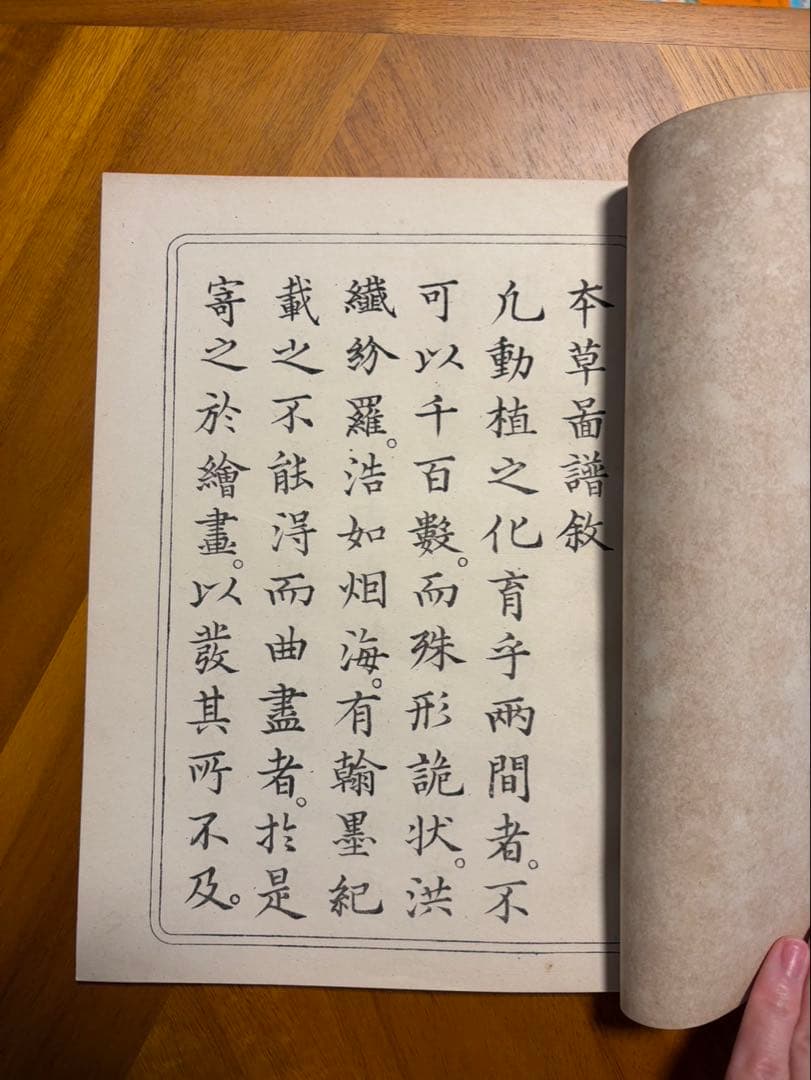 本草啚譜敘
凢動植之化育乎兩間者。不
可以千百數。而殊形詭状。洪
纎紛羅。浩如烟海。有翰墨紀
載之不能淂而曲盡者。扵是
寄之於繪畫。以發其所不及。